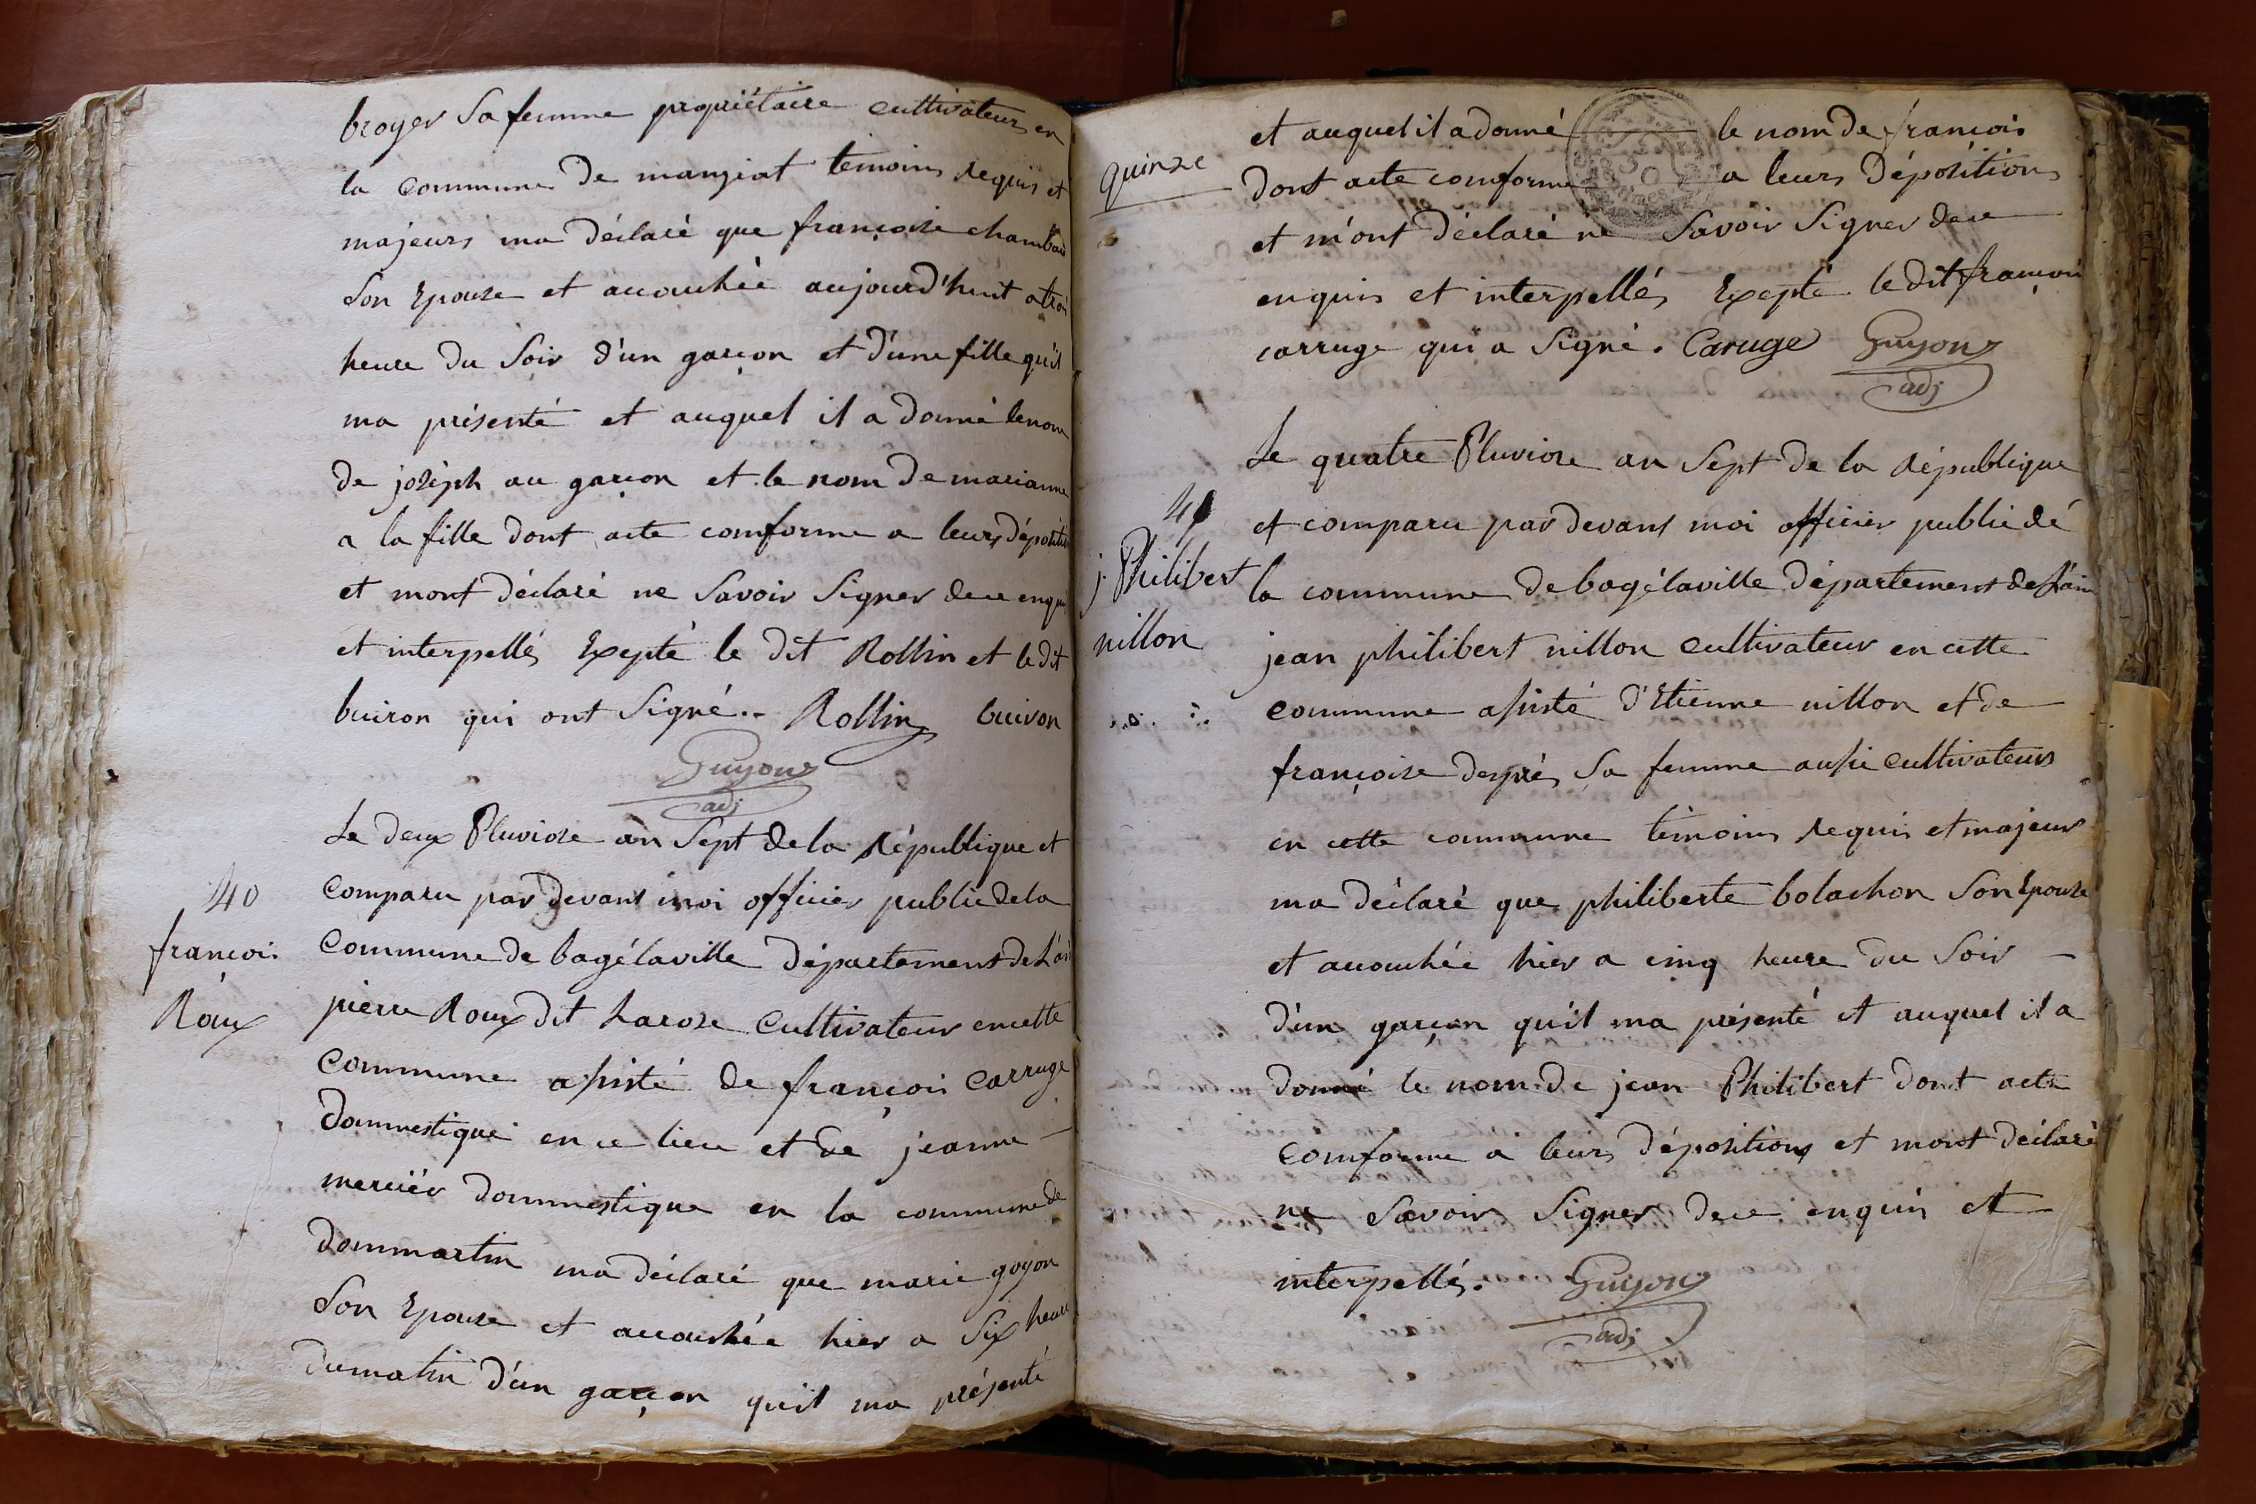 broyer Sa femme propriétaire cultivateurs en
la commune De manziat temoins requis et
majeurs ma Déclaré que françoise chambard
Son Epouse et accouchée aujourd'huit a trois
heure Du Soir D'un garçon et D'une fille qu'il
ma présenté et auquel il a Donné le nom
De joseph au garçon et le nom De marianne
a la fille Dont acte comforme a leurs Dépositions
et mont Déclaré ne Savoir Signer de ce enquis
et interpellés Exepté le Dit Rollin et le Dit
buiron qui ont Signé.. Rollin buiron
Guyon
adj
40
françois
Roux
Le Deux Pluviose an Sept de la République et
Comparu par Devant moi officier public de la
Commune de bagélaville Département de L'ain
pierre Roux Dit Larose Cultivateur en cette
Commune assisté De françois Carruge
Dommestique en ce lieu et De jeanne
mercier Dommestique en la commune de
Dommartin ma Déclaré que marie goyon
Son Epouse et accouchée hier a Six heure
Du matin D'un garçon qu'il ma présenté
quinze
et auquel il a donné le nom De françois
Dont acte comforme a leurs Dépositions
et m'ont Déclaré ne Savoir Signer de ce
enquis et interpellés Exepté le Dit françois
carruge qui a Signé. Caruge Guyon
adj
41
j. Philibert
nillon
Le quatre Pluviose an Sept De la République
et comparu par devant moi officier public dé
la commune De bagélaville Département de L'ain
jean philibert nillon cultivateur en cette
commune assisté D'Etienne nillon et De
françoise desprès Sa femme aussi cultivateurs
en cette commune temoins requis et majeurs
ma Déclaré que philiberte bolachon Son Epouse
et accouchée hier a cinq heure Du Soir
D'un garçon qu'il ma présenté et auquel il a
Donné le nom De jean Philibert Dont acte
comforme a leurs Dépositions et mont Déclaré
ne Savoir Signer De ce enquis et
interpellés. Guyon
adj